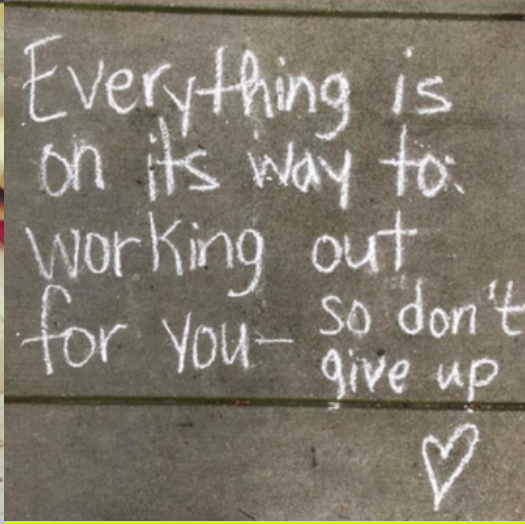 Everything is
on its way to:
working out
for you- so don't
give up